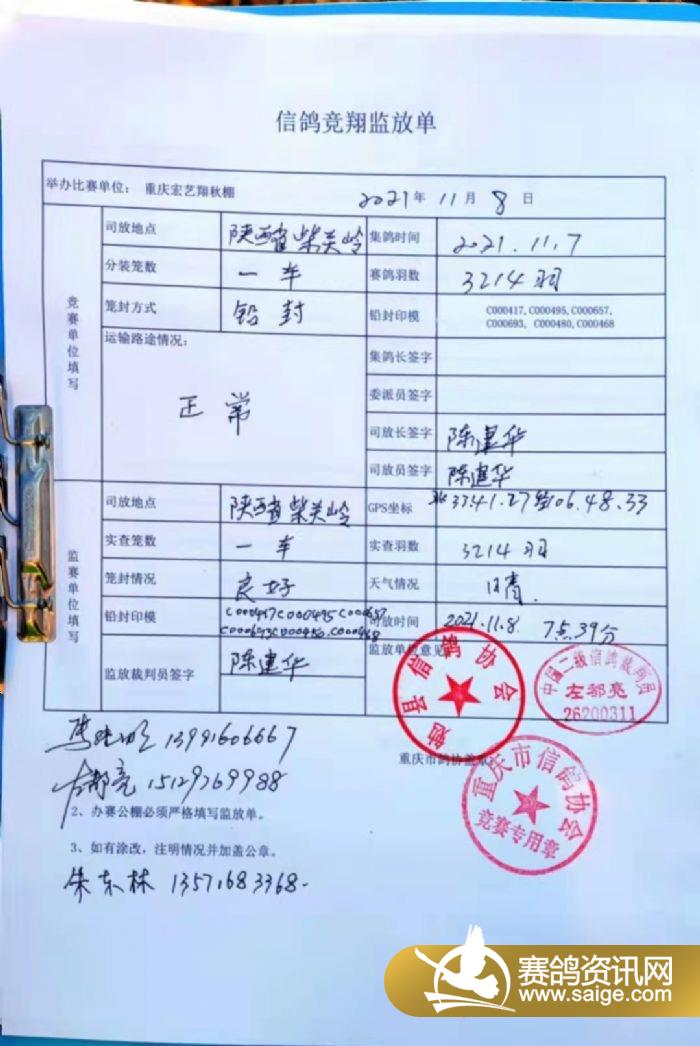 信鸽竞翔监放单
举办比赛单位: 重庆宏艺翔秋棚 2021年 11月 8日
竞赛单位填写
司放地点 陕西省柴关岭 集鸽时间 2021.11.7
分装笼数 一车 赛鸽羽数 3214羽
笼封方式 铅封 铅封印模 C000417,C000495,C000657,
C000693, C000480,C000468
运输路途情况: 集鸽长签字
正常 委派员签字
司放长签字 陈建华
司放员签字 陈建华
监赛单位填写
司放地点 陕西省柴关岭 GPS坐标 北33.41.27 106.48.33
实查笼数 一车 实查羽数 3214羽
笼封情况 良好 天气情况 晴.
铅封印模 C000417C000495C000657
C000693C000480,C000468 司放时间 2021.11.8. 7点39分
监放裁判员签字 陈建华 监放单位意见
勉县信鸽协会
中国二级信鸽裁判员
左都亮
26200311
13991606667
重庆市鸽协盖章
左都亮 15129769988
重庆市信鸽协会
竞赛专用章
2、办赛公棚必须严格填写监放单。
3、如有涂改,注明情况并加盖公章。
朱东林 13571683368.
赛鸽资讯网
www.saige.com